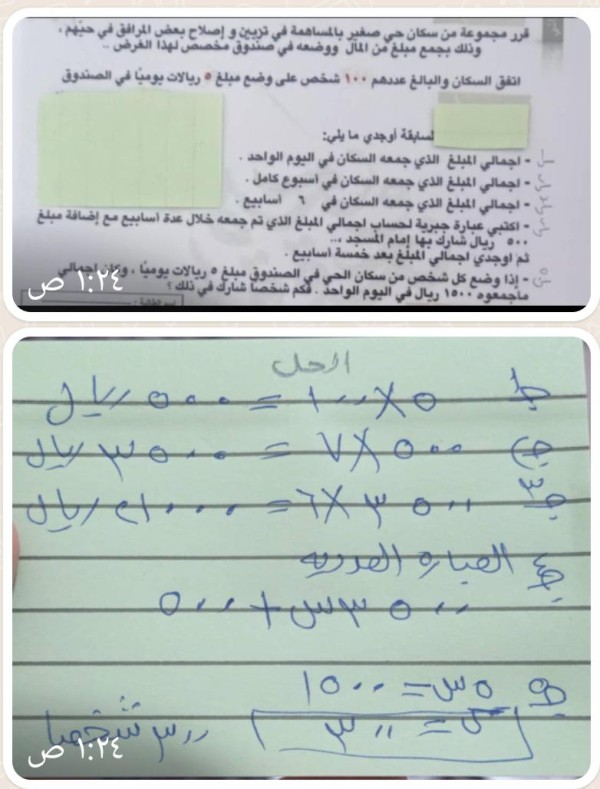 قرر مجموعة من سكان حي صغير بالمساهمة في تزيين و إصلاح بعض المرافق في حيّهم ,
وذلك بجمع مبلغ من المال ووضعه في صندوق مخصص لهذا الغرض ..
اتفق السكان والبالغ عددهم ١٠٠ شخص على وضع مبلغ ٥ ريالات يوميًا في الصندوق
لسابقة أوجدي ما يلي:
- اجمالي المبلغ الذي جمعه السكان في اليوم الواحد .
- اجمالي المبلغ الذي جمعه السكان في أسبوع كامل .
- اجمالي المبلغ الذي جمعه السكان في ٦ أسابيع .
- اكتبي عبارة جبرية لحساب اجمالي المبلغ الذي تم جمعه خلال عدة أسابيع مع إضافة مبلغ
٥٠٠ ريال شارك بها إمام المسجد ...
ثم اوجدي اجمالي المبلغ بعد خمسة أسابيع .
- إذا وضع كل شخص من سكان الحي في الصندوق مبلغ ٥ ريالات يوميًا , وكان اجمالي
ماجمعوه ١٥٠٠ ريال في اليوم الواحد . فكم شخصًا شارك في ذلك ؟
١:٢٤ ص
الحل
ج١ ٥ × ١٠٠ = ٥٠٠ ريال
ج٢ ٥٠٠ × ٧ = ٣٥٠٠ ريال
ج٣ ٣٥٠٠ × ٦ = ٢١٠٠٠ ريال
ج٤ العبارة العدديه
٣٥٠٠ س + ٥٠٠
ج٥ ٥س = ١٥٠٠
س = ٣٠٠ ٣٠٠ شخصا
١:٢٤ ص